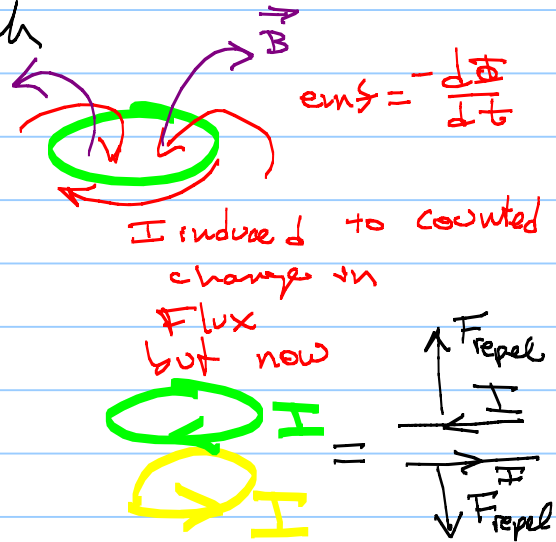 h
B⃗
emf = -dΦ/dt
I induced to counted
change in
Flux
but now
I
I
=
F repel
I
I
F repel